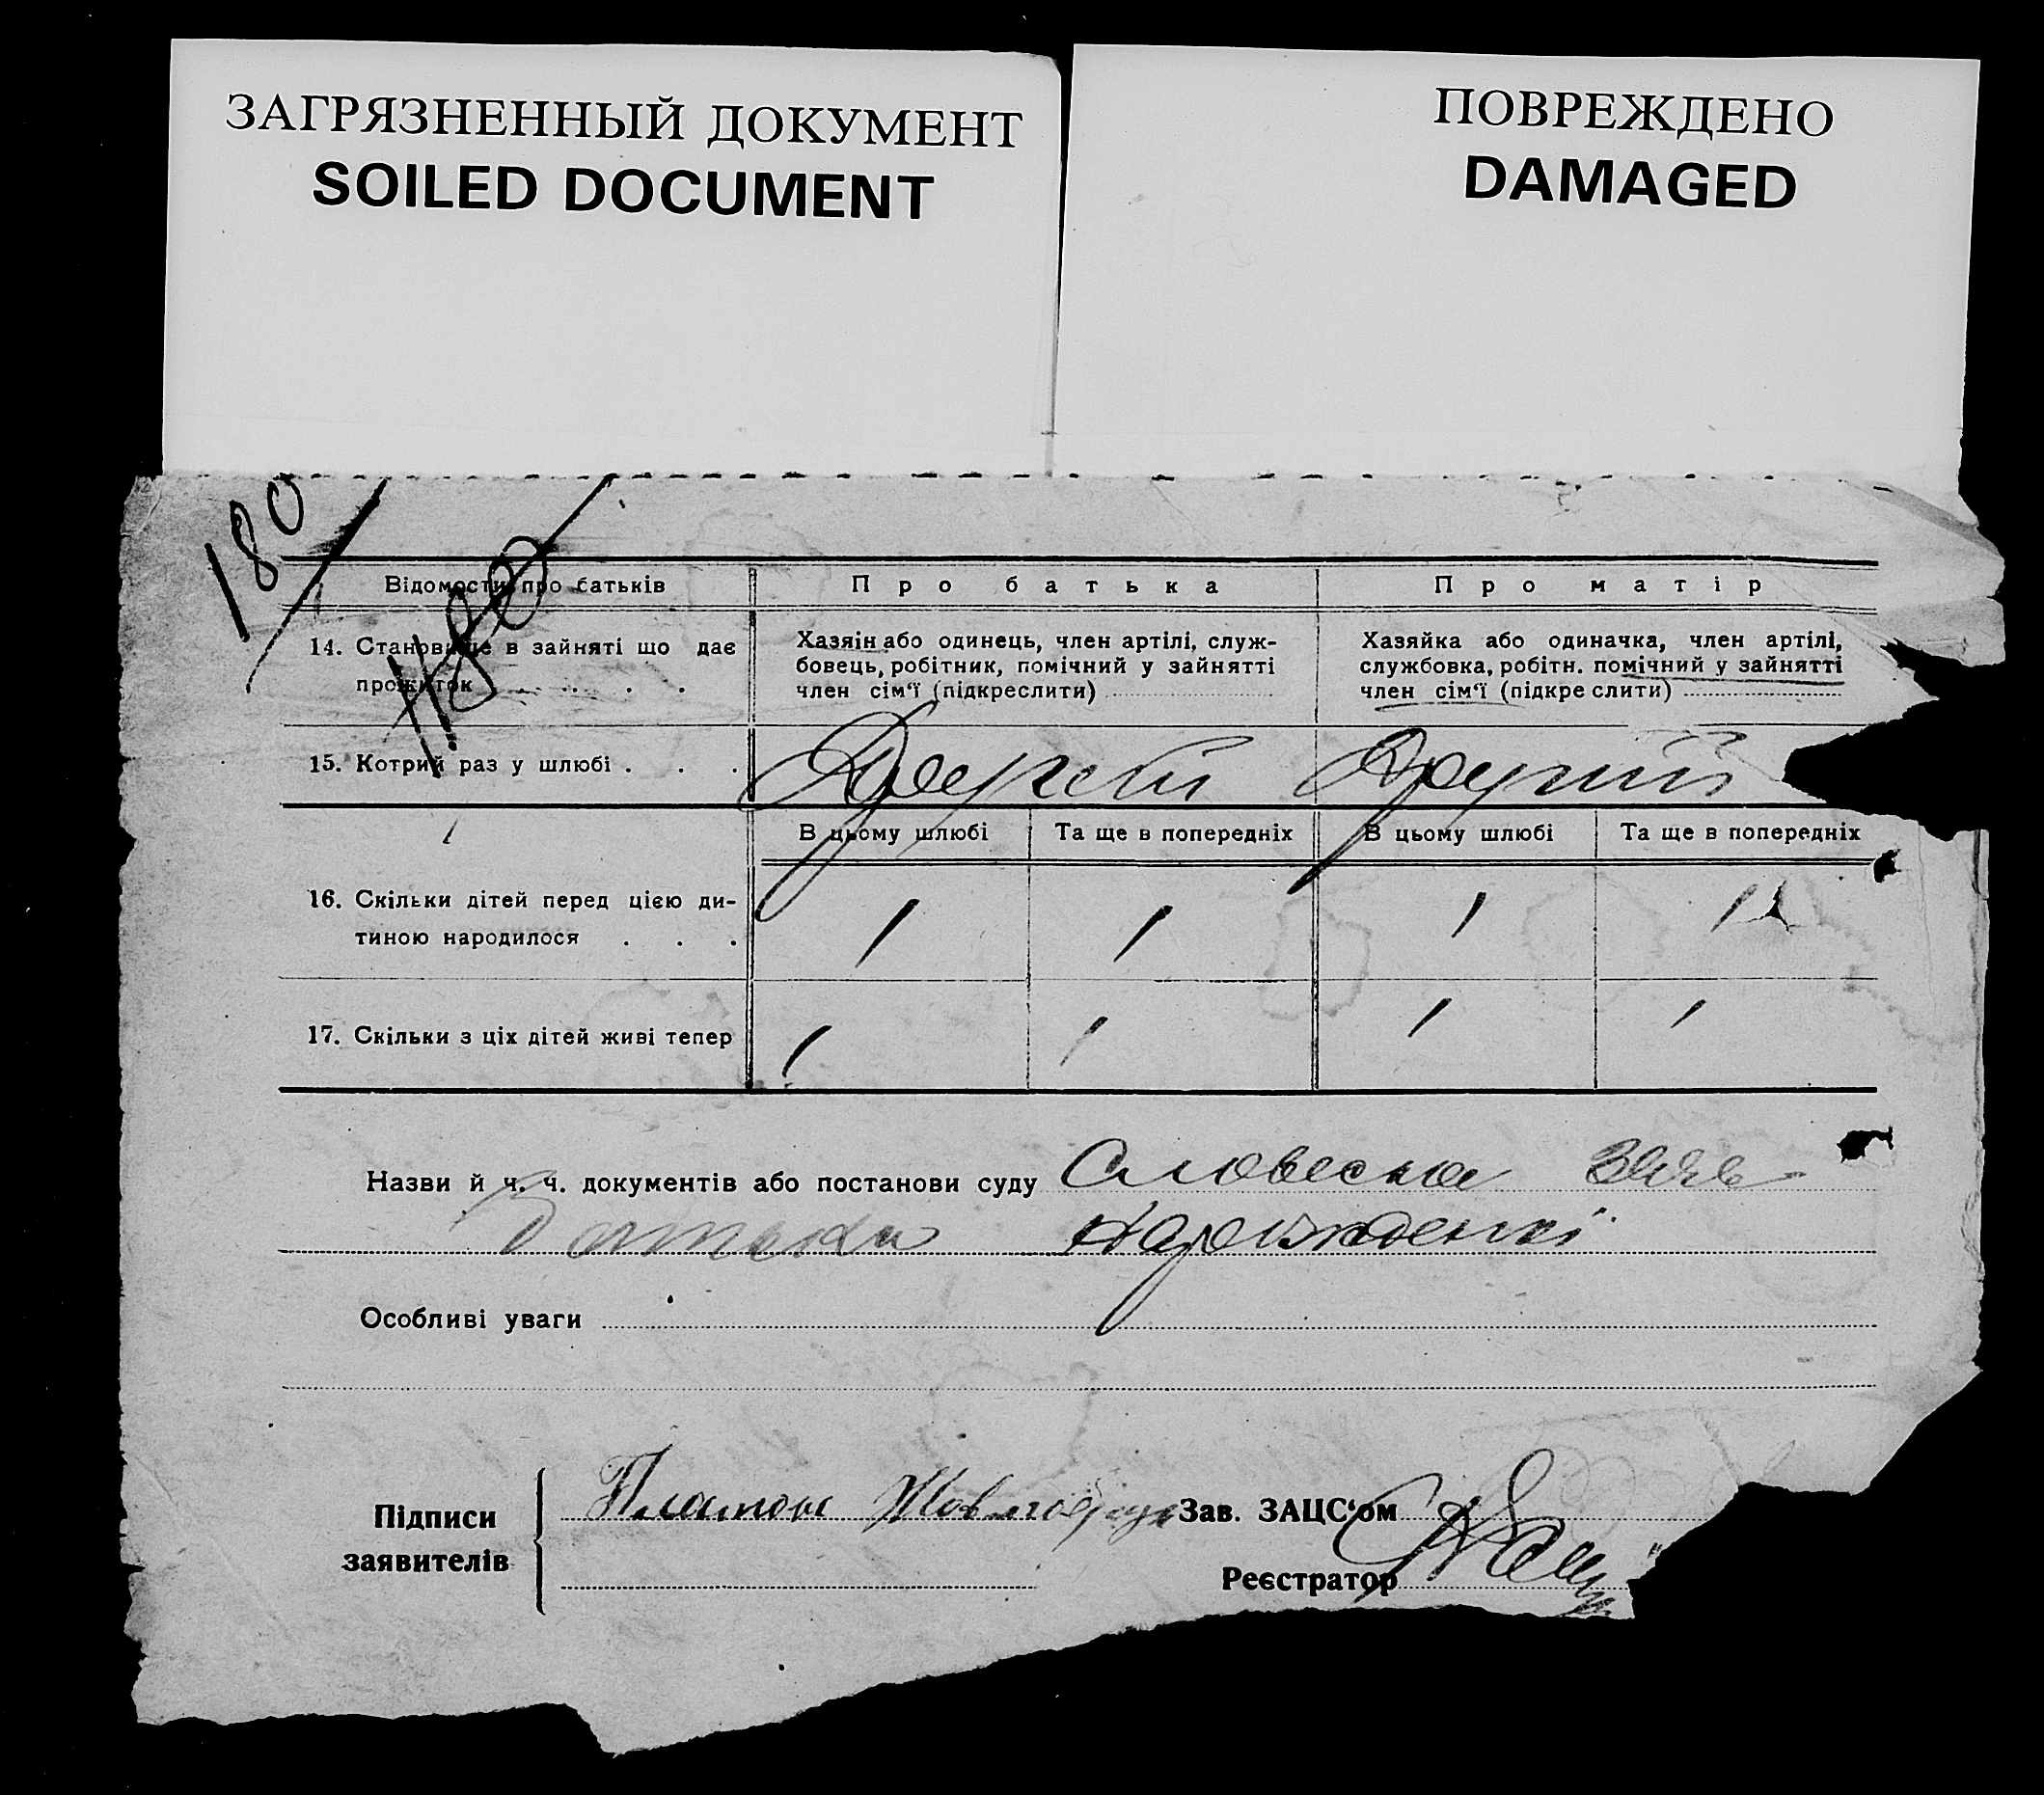 ЗАГРЯЗНЕННЫЙ ДОКУМЕНТ
SOILED DOCUMENT
ПОВРЕЖДЕНО
DAMAGED
180
Відомости про батьків
Про батька
Про матір
14. Становище в зайняті що дає
прожиток . . . .
Хазяїн або одинець, член артілі, служ-
бовець, робітник, помічний у зайнятті
член сім'ї (підкреслити)
Хазяйка або одиначка, член артілі,
службовка, робітн. помічний у зайнятті
член сім'ї (підкреслити)
15. Котрий раз у шлюбі . . .
Другий
Другий
В цьому шлюбі
Та ще в попередніх
В цьому шлюбі
Та ще в попередніх
16. Скільки дітей перед цією ди-
тиною народилося . . .
1 1 1 1
17. Скільки з ціх дітей живі тепер
1 1 1 1
Назви й ч. ч. документів або постанови суду Словесна
Батька
Особливі уваги
Підписи
заявителів
Платон
Зав. ЗАЦС'ом
Реєстратор